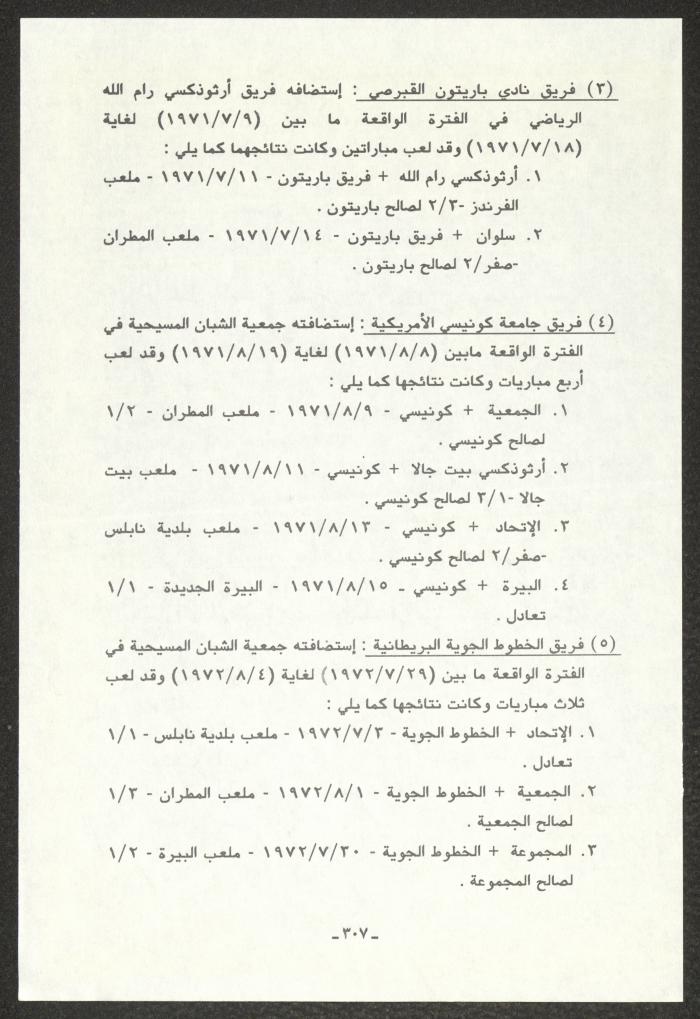 (٣) فريق نادي باريتون القبرصي : إستضافه فريق أرثوذكسي رام الله
الرياضي في الفترة الواقعة ما بين (١٩٧١/٧/٩) لغاية
(١٩٧١/٧/١٨) وقد لعب مباراتين وكانت نتائجهما كما يلي :
١. أرثوذكسي رام الله + فريق باريتون - ١٩٧١/٧/١١ - ملعب
الفرندز -٢/٣ لصالح باريتون .
٢. سلوان + فريق باريتون - ١٩٧١/٧/١٤ - ملعب المطران
-صفر/٢ لصالح باريتون .
(٤) فريق جامعة كونيسي الأمريكية : إستضافته جمعية الشبان المسيحية في
الفترة الواقعة مابين (١٩٧١/٨/٨) لغاية (١٩٧١/٨/١٩) وقد لعب
أربع مباريات وكانت نتائجها كما يلي :
١. الجمعية + كونيسي - ١٩٧١/٨/٩ - ملعب المطران - ١/٢
لصالح كونيسي .
٢. أرثوذكسي بيت جالا + كونيسي - ١٩٧١/٨/١١ - ملعب بيت
جالا -٣/١ لصالح كونيسي .
٣. الإتحاد + كونيسي - ١٩٧١/٨/١٣ - ملعب بلدية نابلس
-صفر/٢ لصالح كونيسي .
٤. البيرة + كونيسي ـ ١٩٧١/٨/١٥ - البيرة الجديدة - ١/١
تعادل .
(٥) فريق الخطوط الجوية البريطانية : إستضافته جمعية الشبان المسيحية في
الفترة الواقعة ما بين (١٩٧٢/٧/٢٩) لغاية (١٩٧٢/٨/٤) وقد لعب
ثلاث مباريات وكانت نتائجها كما يلي :
١. الإتحاد + الخطوط الجوية - ١٩٧٢/٧/٣ - ملعب بلدية نابلس - ١/١
تعادل .
٢. الجمعية + الخطوط الجوية - ١٩٧٢/٨/١ - ملعب المطران - ١/٣
لصالح الجمعية .
٣. المجموعة + الخطوط الجوية - ١٩٧٢/٧/٣٠ - ملعب البيرة - ١/٢
لصالح المجموعة .
ـ ٣٠٧ ـ